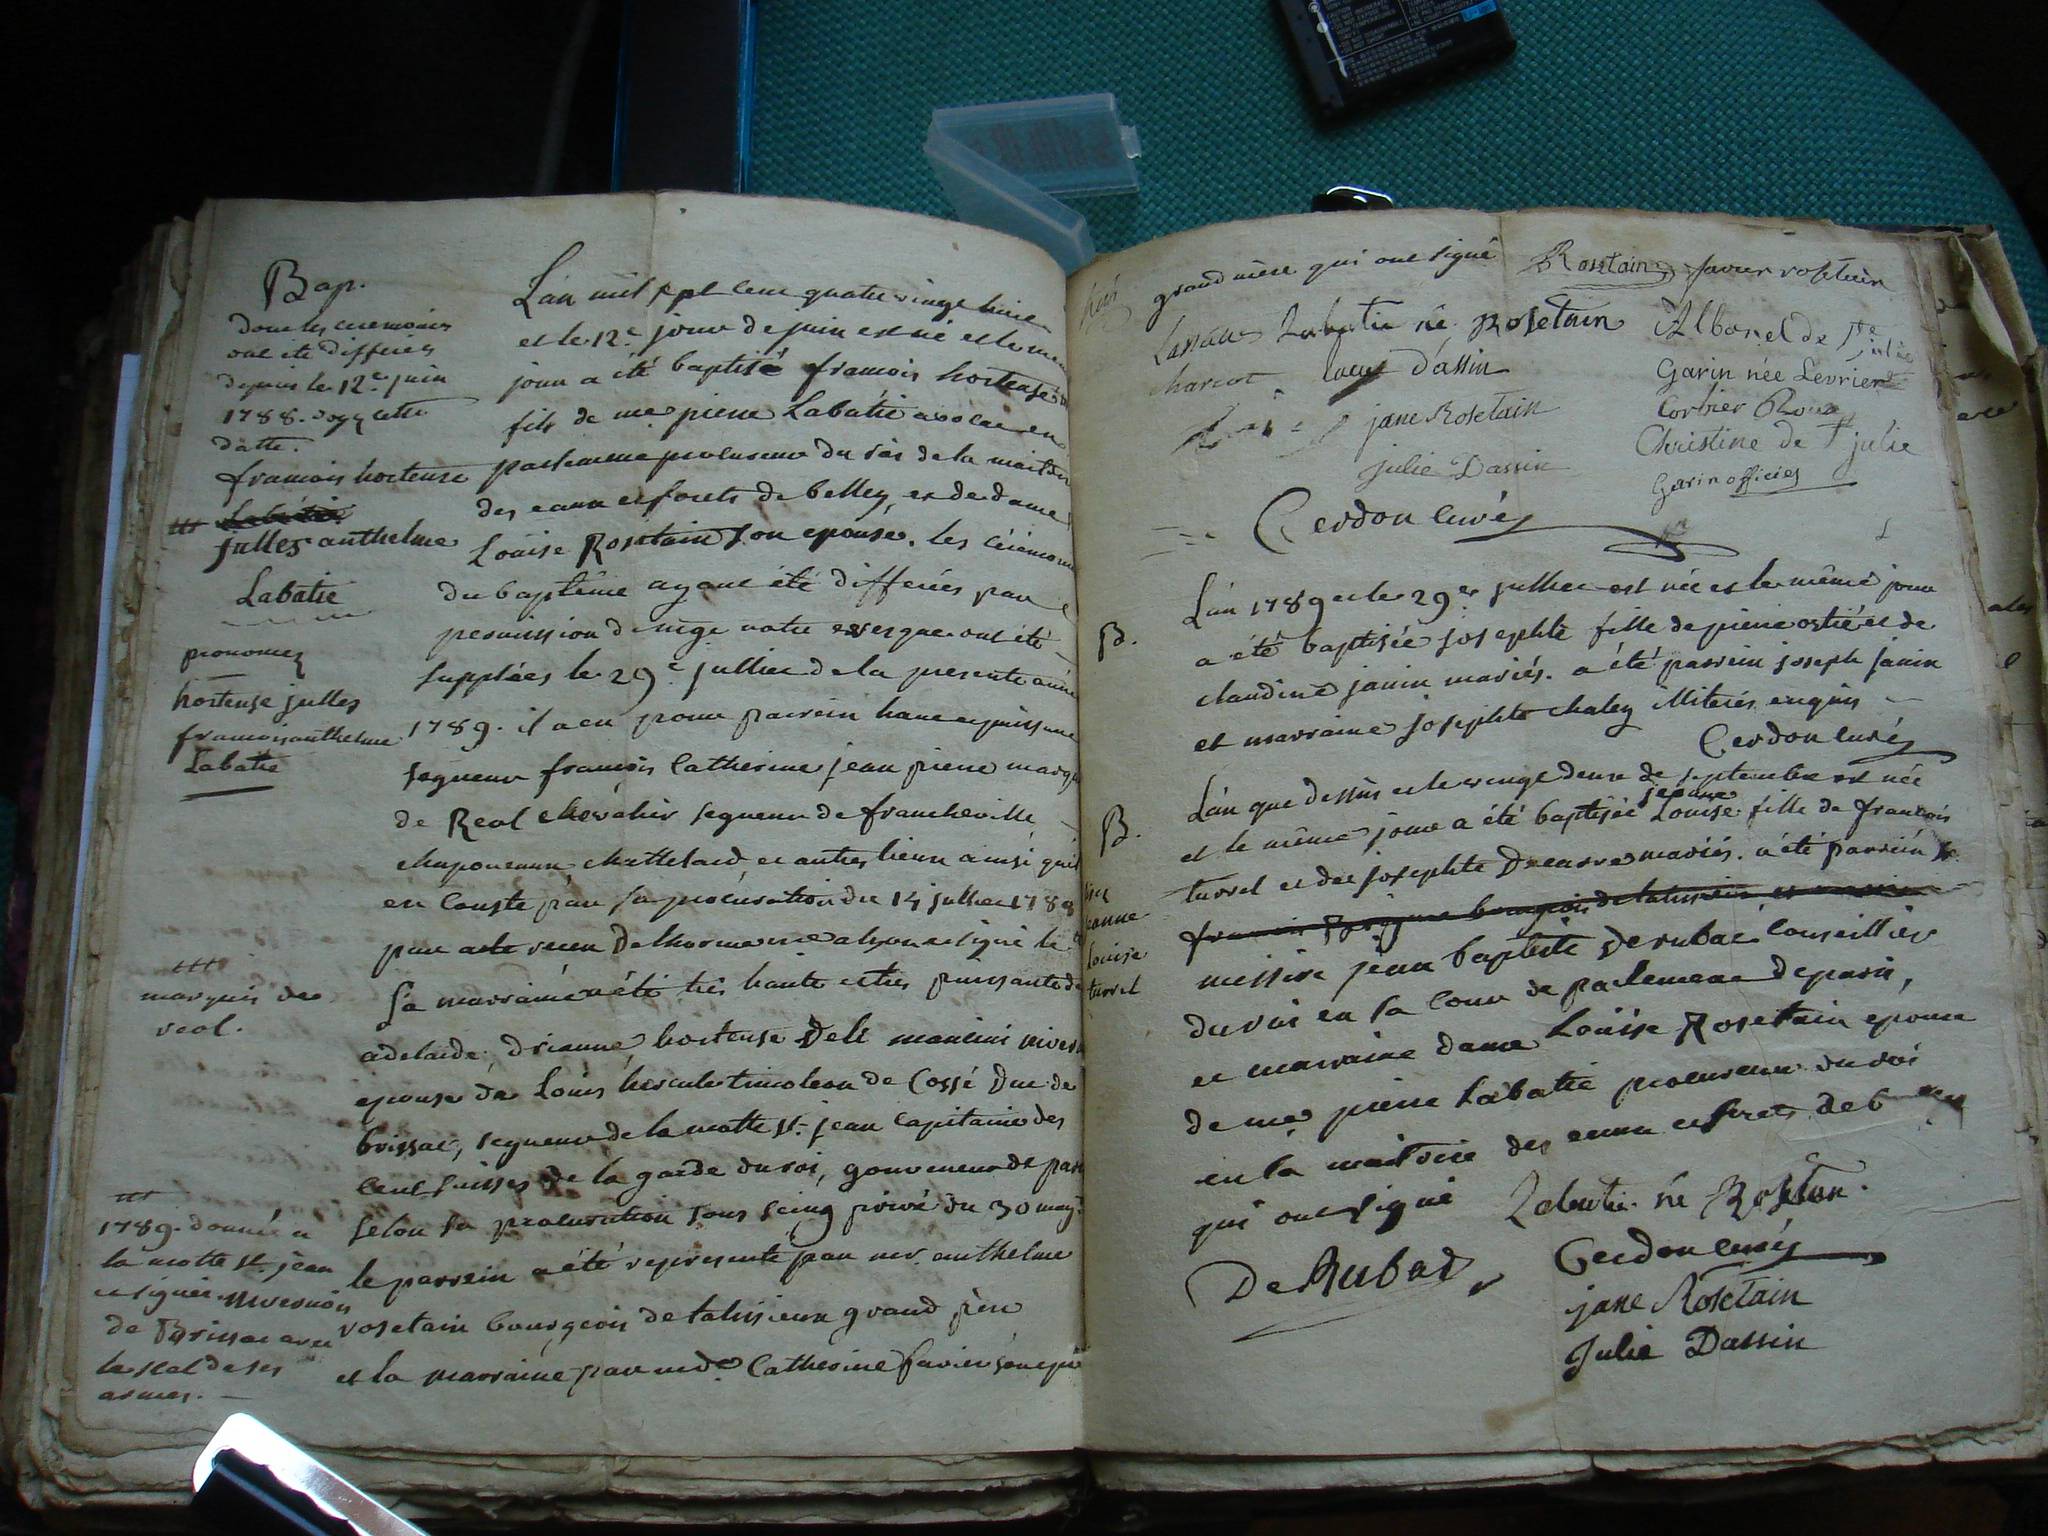 Bap.
dont les ceremonies
ont été differées
depuis le 12e juin
1788. voyez cette
datte.
francois hortense
julles anthelme
Labatie
prononcez
hortense julles
francois anthelme
Labatie
marquis de
real.
1789. donnée a
la motte st. jean
et signée Nivernois
de Brissac avec
le scel de ses
armes.
L'an mil sept cent quatre vingt huit
et le 12e jour de juin est né et le meme
jour a été baptisé francois hortense
fils de me pierre Labatie avocat en
parlement procureur du roi de la maitrise
des eaux et forets de belley, et de dame
Louise Rosetain son epouse. les céremonies
du baptême ayant été differées par
permission de mgr notre evesque ont été
supplées le 29e juillet de la presente année
1789. il a eu pour parrein haut et puissant
segneur francois Catherine jean pierre marquis
de Real chevalier segneur de francheville
chaponeaux, chattelard et autres lieux ainsi qu'il
en conste par sa procuration du 14 juillet 1788
par acte recu Delhorme me a lyon et signé le
sa marraine a été trés haute et trés puissante de
adelaide dianne hortense Deli mancini nivern
epouse de Louis hercule timoleon de Cossé Duc de
brissac, segneur de la motte st. jean capitaine des
cent suisses de la garde du roi, gouverneur de paris
selon sa procuration sous seing privé du 30 may
le parrein a été representé par mr. anthelme
rosetain bourgeois de talissieux grand pere
et la marraine par mde. Catherine favier son epou
grand mere qui ont signé Rosetain favier rosetain
Labatie né Rosetain Albanel de Ste julie
charcot Dassin Garin née Levrier
jane Rosetain Corbier
Julie Dassin Christine de St julie
Garin officier
Cerdon curé
B.
L'an 1789 et le 29e juillet est née et le même jour
a été baptisée josephte fille de pierre ostié et de
claudine janin mariés. a été parrein joseph janin
et marraine josephte chaley illiterés enquis
Cerdon curé
B.
jeanne
Louise
turrel
L'an que dessus et le vingt deux de septembre est née
et le même jour a été baptisée jeanne Louise fille de francois
turrel et de josephte Ducarre mariés. a été parrein
francois bourgeois de talissieu et marraine
messire jean baptiste Derubat Conseillier
du roi en sa cour de parlement de paris,
et marraine dame Louise Rosetain epouse
de me pierre Labatie procureur du roi
en la maitrise des eaux et forets de
qui ont signé Labatie né Rosetain.
DeRubat Cerdon curé
jane Rosetain
Julie Dassin